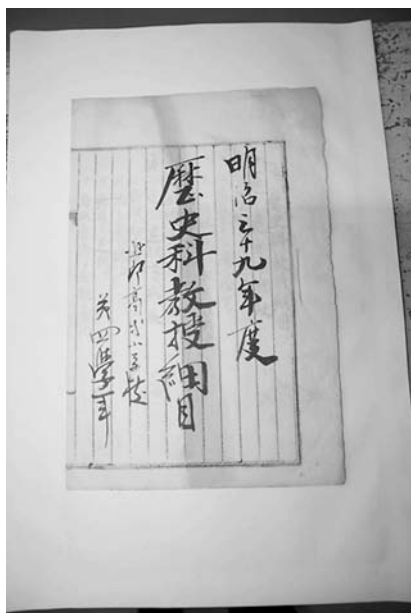 明治三十九年度
歴史科教授細目
高等小学校
第四學年